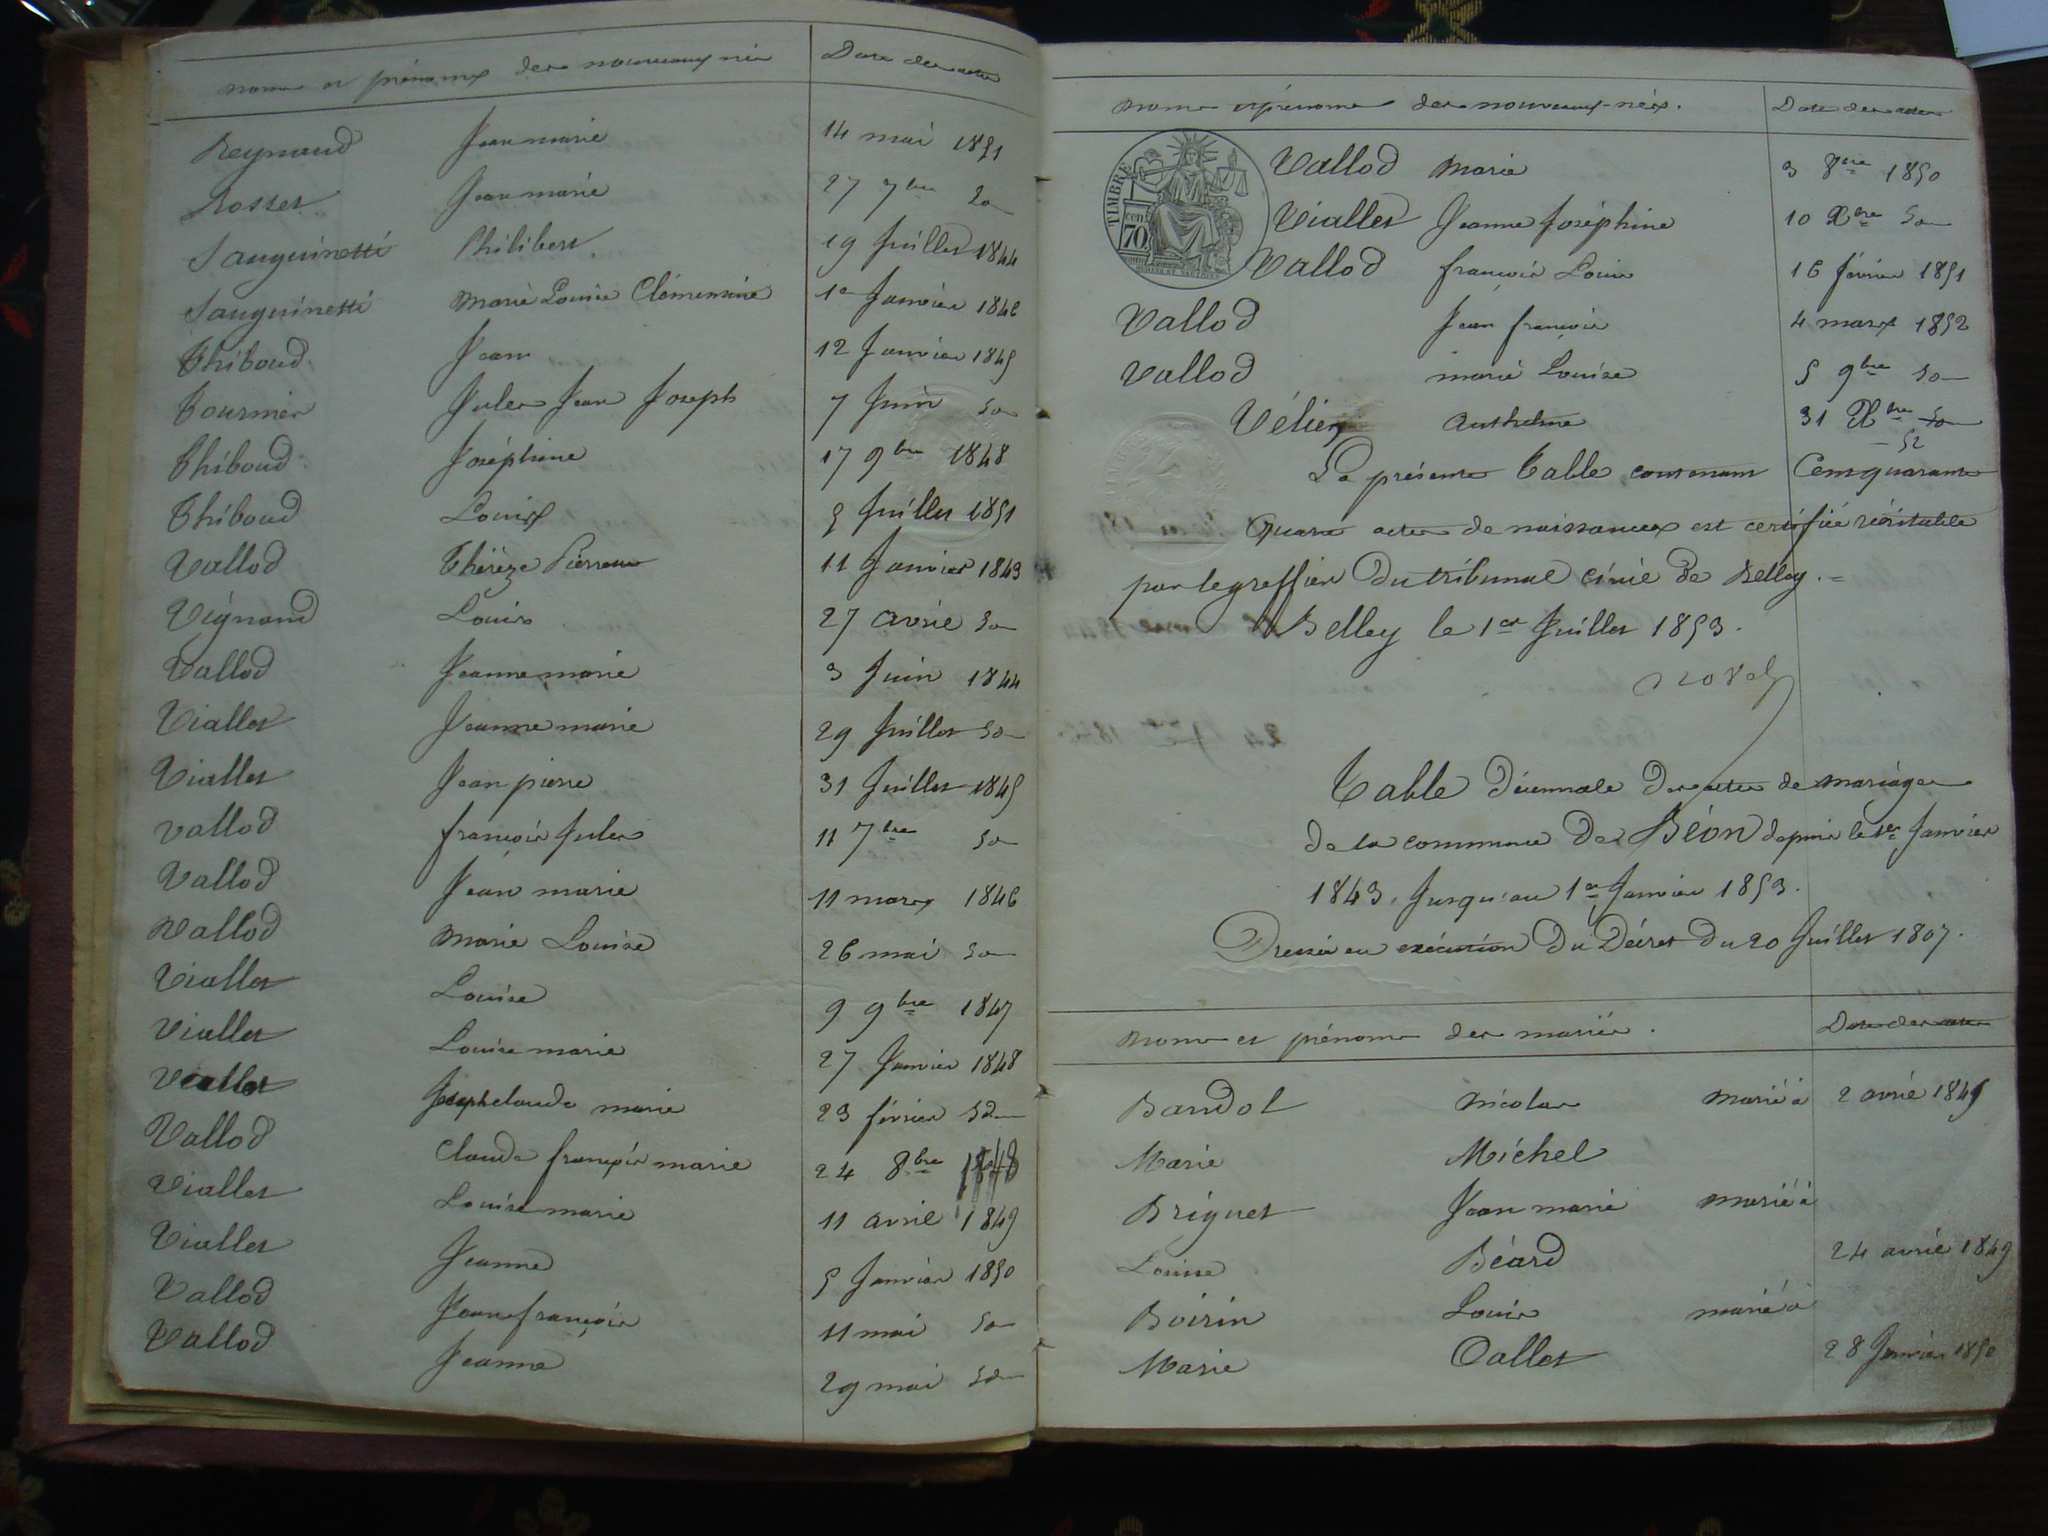 noms et prénoms des nouveaux nés Date des actes
Reynaud Jean marie 14 mai 1851
Rosset Jean marie 27 7bre do
Sanguinetti Philibert 19 Juillet 1844
Sanguinetti Marie Louise Clémentine 1er Janvier 1846
Thiboud Jean 12 Janvier 1845
Tournier Jules Jean Joseph 7 Juin do
Thiboud Joséphine 17 9bre 1848
Thiboud Louis 5 Juillet 1851
Vallod Thérèze Pierrette 11 Janvier 1843
Vignand Louis 27 avril do
Vallod Jeanne marie 3 Juin 1844
Viallet Jeanne marie 29 Juillet do
Viallet Jean pierre 31 Juillet 1845
Vallod françois Jules 11 7bre do
Vallod Jean marie 11 mars 1846
Vallod Marie Louise 26 mai do
Viallet Louise 9 9bre 1847
Viallet Louise marie 27 Janvier 1848
Viallet Joseph claude marie 23 février do
Vallod Claude françois marie 24 8bre 1848
Viallet Louise marie 11 avril 1849
Viallet Jeanne 5 Janvier 1850
Vallod Jean françois 11 mai do
Vallod Jeanne 29 mai do
noms et prénoms des nouveaux-nés. Date des actes
TIMBRE
70
Vallod Marie 3 8bre 1850
Viallet Jeanne Joséphine 10 Xbre do
Vallod françois Louis 16 février 1851
Vallod Jean françois 4 mars 1852
Vallod marie Louise 5 9bre do
Vélien Anthelme 31 Xbre do
52
La présente Table, contenant Cent quarante
Quatre actes de naissances est certifiée véritable
par le greffier Du tribunal civil de Belley.
Belley le 1er Juillet 1853.
Table Décennale Des actes de mariages
de la commune De Béon depuis le 1er Janvier
1843, Jusqu'au 1er Janvier 1853.
Dressée en exécution Du Décret Du 20 Juillet 1807.
Noms et prénoms des mariés. Date des actes
Bandol Nicolas marié à 2 avril 1845
Marie Michel
Briguet Jean marie marié à
Louise Béard 24 avril 1849
Boirin Louis marié à
Marie Oallet 28 Janvier 1850